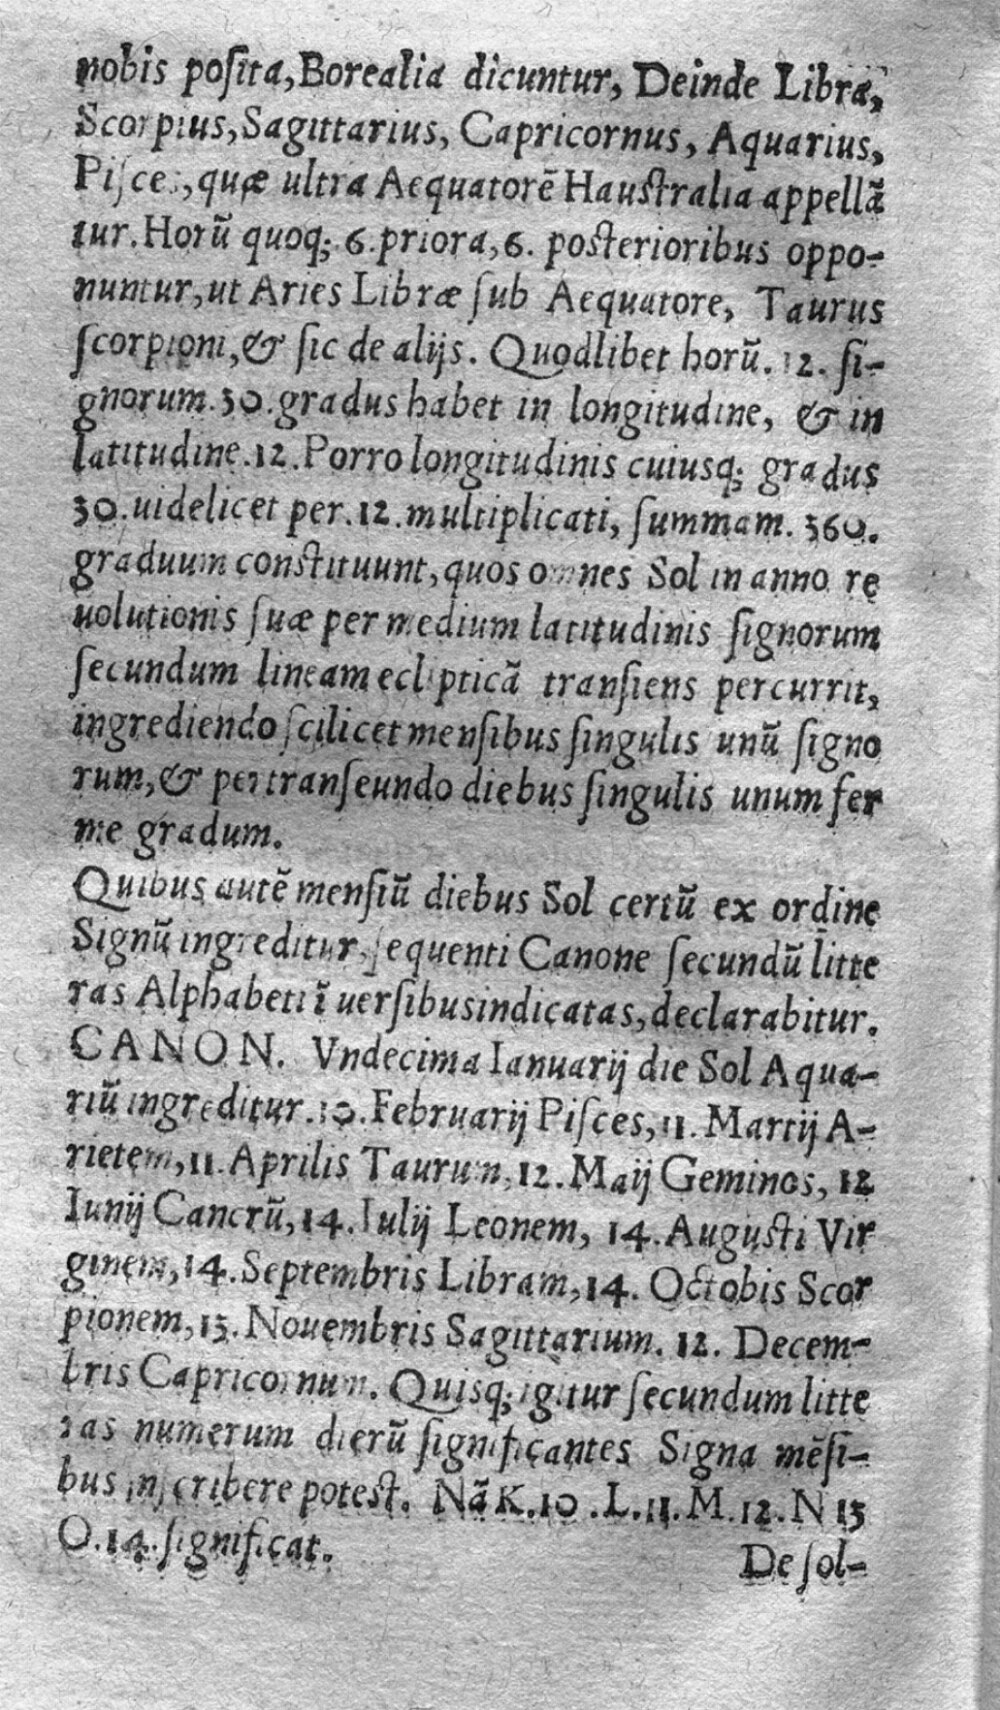 nobis posita, Borealia dicuntur, Deinde Libra,
Scorpius, Sagittarius, Capricornus, Aquarius,
Pisces, quæ ultra Aequatorē Haustralia appellā
tur. Horū quoq; 6. priora, 6. posterioribus oppo-
nuntur, ut Aries Libræ sub Aequatore, Taurus
scorpioni, & sic de alijs. Quodlibet horū. 12. si-
gnorum. 30. gradus habet in longitudine, & in
latitudine. 12. Porro longitudinis cuiusq; gradus
30. uidelicet per. 12. multiplicati, summam. 360.
graduum constituunt, quos omnes Sol in anno re
uolutionis suæ per medium latitudinis signorum
secundum lineam eclipticā transiens percurrit,
ingrediendo scilicet mensibus singulis unū signo
rum, & pertranseundo diebus singulis unum fer
me gradum.
Quibus autē mensiū diebus Sol certū ex ordine
Signū ingreditur, sequenti Canone secundū litte
ras Alphabeti ī uersibus indicatas, declarabitur.
CANON. Vndecima Ianuarij die Sol Aqua-
riū ingreditur. 10. Februarij Pisces, 11. Martij A-
rietem, 11. Aprilis Taurum, 12. Maij Geminos, 12
Iunij Cancrū, 14. Iulij Leonem, 14. Augusti Vir
ginem, 14. Septembris Libram, 14. Octobis Scor
pionem, 13. Nouembris Sagittarium. 12. Decem-
bris Capricornum. Quisq; igitur secundum litte
ras numerum dierū significantes Signa mēsi-
bus inscribere potest. Nā K. 10. L. 11. M. 12. N 13
O. 14. significat.
De sol-